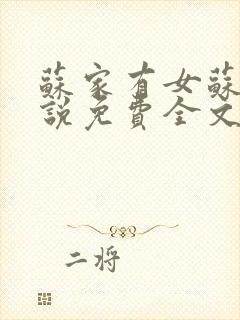 蘇家有女蘇
說免費全文
二將